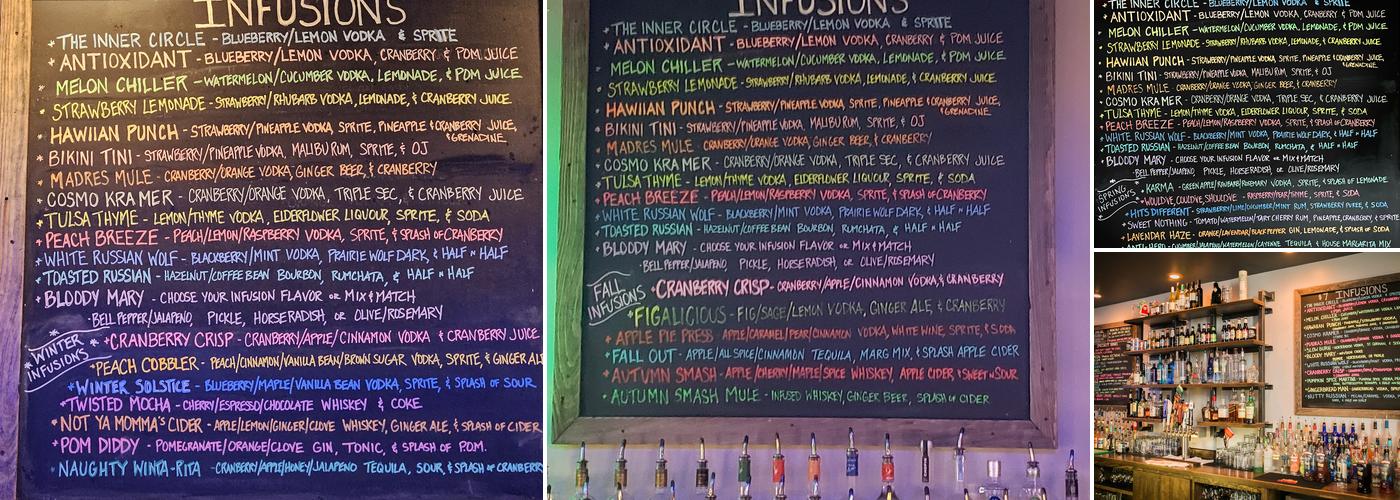 INFUSIONS
THE INNER CIRCLE - BLUEBERRY/LEMON VODKA & SPRITE
ANTIOXIDANT - BLUEBERRY/LEMON VODKA, CRANBERRY & POM JUICE
MELON CHILLER - WATERMELON/CUCUMBER VODKA, LEMONADE, & POM JUICE
STRAWBERRY LEMONADE - STRAWBERRY/RHUBARB VODKA, LEMONADE, & CRANBERRY JUICE
HAWIIAN PUNCH - STRAWBERRY/PINEAPPLE VODKA, SPRITE, PINEAPPLE & CRANBERRY JUICE, & GRENADINE
BIKINI TINI - STRAWBERRY/PINEAPPLE VODKA, MALIBU RUM, SPRITE, & OJ
MADRES MULE - CRANBERRY/ORANGE VODKA, GINGER BEER, & CRANBERRY
COSMO KRAMER - CRANBERRY/ORANGE VODKA, TRIPLE SEC, & CRANBERRY JUICE
TULSA THYME - LEMON/THYME VODKA, ELDERFLOWER LIQUOUR, SPRITE, & SODA
PEACH BREEZE - PEACH/LEMON/RASPBERRY VODKA, SPRITE, & SPLASH OF CRANBERRY
WHITE RUSSIAN WOLF - BLACKBERRY/MINT VODKA, PRAIRIE WOLF DARK, & HALF N HALF
TOASTED RUSSIAN - HAZELNUT/COFFEE BEAN BOURBON, RUMCHATA, & HALF N HALF
BLOODY MARY - CHOOSE YOUR INFUSION FLAVOR OR MIX & MATCH
- BELL PEPPER/JALAPENO, PICKLE, HORSERADISH, OR OLIVE/ROSEMARY
WINTER INFUSIONS
CRANBERRY CRISP - CRANBERRY/APPLE/CINNAMON VODKA & CRANBERRY JUICE
PEACH COBBLER - PEACH/CINNAMON/VANILLA BEAN/BROWN SUGAR VODKA, SPRITE, & GINGER ALE
WINTER SOLSTICE - BLUEBERRY/MAPLE/VANILLA BEAN VODKA, SPRITE, & SPLASH OF SOUR
TWISTED MOCHA - CHERRY/ESPRESSO/CHOCOLATE WHISKEY & COKE
NOT YA MOMMA'S CIDER - APPLE/LEMON/GINGER/CLOVE WHISKEY, GINGER ALE, & SPLASH OF CIDER
POM DIDDY - POMEGRANATE/ORANGE/CLOVE GIN, TONIC, & SPLASH OF POM.
NAUGHTY WINTA-RITA - CRANBERRY/APPLE/HONEY/JALAPENO TEQUILA, SOUR, & SPLASH OF CRANBERRY
INFUSIONS
THE INNER CIRCLE - BLUEBERRY/LEMON VODKA & SPRITE
ANTIOXIDANT - BLUEBERRY/LEMON VODKA, CRANBERRY & POM JUICE
MELON CHILLER - WATERMELON/CUCUMBER VODKA, LEMONADE, & POM JUICE
STRAWBERRY LEMONADE - STRAWBERRY/RHUBARB VODKA, LEMONADE, & CRANBERRY JUICE
HAWIIAN PUNCH - STRAWBERRY/PINEAPPLE VODKA, SPRITE, PINEAPPLE & CRANBERRY JUICE, & GRENADINE
BIKINI TINI - STRAWBERRY/PINEAPPLE VODKA, MALIBU RUM, SPRITE, & OJ
MADRES MULE - CRANBERRY/ORANGE VODKA, GINGER BEER, & CRANBERRY
COSMO KRAMER - CRANBERRY/ORANGE VODKA, TRIPLE SEC, & CRANBERRY JUICE
TULSA THYME - LEMON/THYME VODKA, ELDERFLOWER LIQUOUR, SPRITE, & SODA
PEACH BREEZE - PEACH/LEMON/RASPBERRY VODKA, SPRITE, & SPLASH OF CRANBERRY
WHITE RUSSIAN WOLF - BLACKBERRY/MINT VODKA, PRAIRIE WOLF DARK, & HALF N HALF
TOASTED RUSSIAN - HAZELNUT/COFFEE BEAN BOURBON, RUMCHATA, & HALF N HALF
BLOODY MARY - CHOOSE YOUR INFUSION FLAVOR OR MIX & MATCH
- BELL PEPPER/JALAPENO, PICKLE, HORSERADISH, OR OLIVE/ROSEMARY
FALL INFUSIONS
CRANBERRY CRISP - CRANBERRY/APPLE/CINNAMON VODKA, & CRANBERRY
FIGALICIOUS - FIG/SAGE/LEMON VODKA, GINGER ALE, & CRANBERRY
APPLE PIE PRESS APPLE/CARAMEL/PEAR/CINNAMON VODKA, WHITE WINE, SPRITE, & SODA
FALL OUT - APPLE/ALLSPICE/CINNAMON TEQUILA, MARG MIX, & SPLASH APPLE CIDER
AUTUMN SMASH - APPLE/CHERRY/MAPLE/SPICE WHISKEY, APPLE CIDER & SWEET N SOUR
AUTUMN SMASH MULE - INFUSED WHISKEY, GINGER BEER, & SPLASH OF CIDER
THE INNER CIRCLE - BLUEBERRY/LEMON VODKA & SPRITE
ANTIOXIDANT - BLUEBERRY/LEMON VODKA, CRANBERRY & POM JUICE
MELON CHILLER - WATERMELON/CUCUMBER VODKA, LEMONADE, & POM JUICE
STRAWBERRY LEMONADE - STRAWBERRY/RHUBARB VODKA, LEMONADE, & CRANBERRY JUICE
HAWIIAN PUNCH - STRAWBERRY/PINEAPPLE VODKA, SPRITE, PINEAPPLE & CRANBERRY JUICE, & GRENADINE
BIKINI TINI - STRAWBERRY/PINEAPPLE VODKA, MALIBU RUM, SPRITE, & OJ
MADRES MULE - CRANBERRY/ORANGE VODKA, GINGER BEER, & CRANBERRY
COSMO KRAMER - CRANBERRY/ORANGE VODKA, TRIPLE SEC, & CRANBERRY JUICE
TULSA THYME - LEMON/THYME VODKA, ELDERFLOWER LIQUOUR, SPRITE, & SODA
PEACH BREEZE - PEACH/LEMON/RASPBERRY VODKA, SPRITE, & SPLASH OF CRANBERRY
WHITE RUSSIAN WOLF - BLACKBERRY/MINT VODKA, PRAIRIE WOLF DARK, & HALF N HALF
TOASTED RUSSIAN - HAZELNUT/COFFEE BEAN BOURBON, RUMCHATA, & HALF N HALF
BLOODY MARY - CHOOSE YOUR INFUSION FLAVOR OR MIX & MATCH
- BELL PEPPER/JALAPENO, PICKLE, HORSERADISH, OR OLIVE/ROSEMARY
SPRING INFUSIONS
KARMA - GREEN APPLE/RHUBARB/ROSEMARY VODKA, SPRITE, & SPLASH OF LEMONADE
WOULDIVE, COULDIVE, SHOULDIVE - RASPBERRY/PEAR/ VODKA, SPRITE, & SODA
HITS DIFFERENT - STRAWBERRY/LIME/CUCUMBER/MINT RUM, STRAWBERRY PUREE, & SODA
SWEET NOTHING - TOMATO/WATERMELON/TART CHERRY RUM, PINEAPPLE, CRANBERRY & SPRITE
LAVENDAR HAZE - ORANGE/LAVENDAR/BLACK PEPPER GIN, LEMONADE, & SPLASH OF
ANTI-HERO - CUCUMBER/JALAPENO/WATERMELON/CAYENNE TEQUILA & HOUSE MARGARITA MIX
$7 INFUSIONS